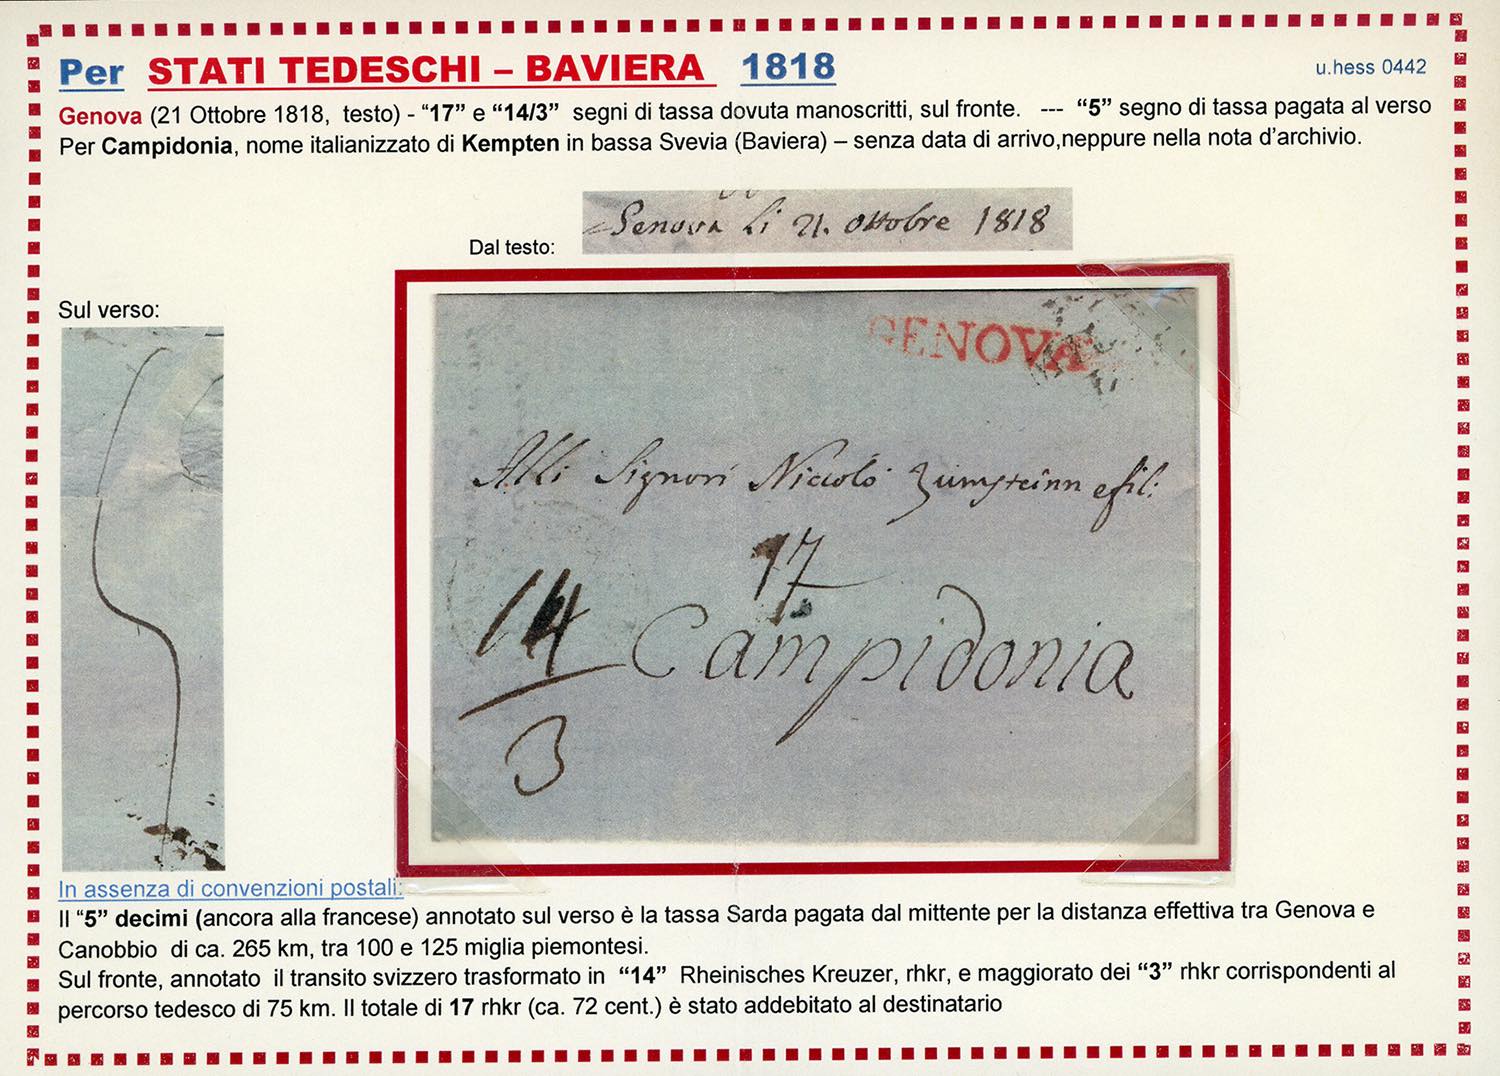 Per STATI TEDESCHI – BAVIERA 1818
u.hess 0442
Genova (21 Ottobre 1818, testo) - “17” e “14/3” segni di tassa dovuta manoscritti, sul fronte. --- “5” segno di tassa pagata al verso
Per Campidonia, nome italianizzato di Kempten in bassa Svevia (Baviera) – senza data di arrivo,neppure nella nota d’archivio.
Dal testo:
Genova li 21. ottobre 1818
Sul verso:
GENOVA
Alli Signori Niccoló Zumsteinn e fil:
17
14
3
Campidonia
In assenza di convenzioni postali:
Il “5” decimi (ancora alla francese) annotato sul verso è la tassa Sarda pagata dal mittente per la distanza effettiva tra Genova e
Canobbio di ca. 265 km, tra 100 e 125 miglia piemontesi.
Sul fronte, annotato il transito svizzero trasformato in “14” Rheinisches Kreuzer, rhkr, e maggiorato dei “3” rhkr corrispondenti al
percorso tedesco di 75 km. Il totale di 17 rhkr (ca. 72 cent.) è stato addebitato al destinatario